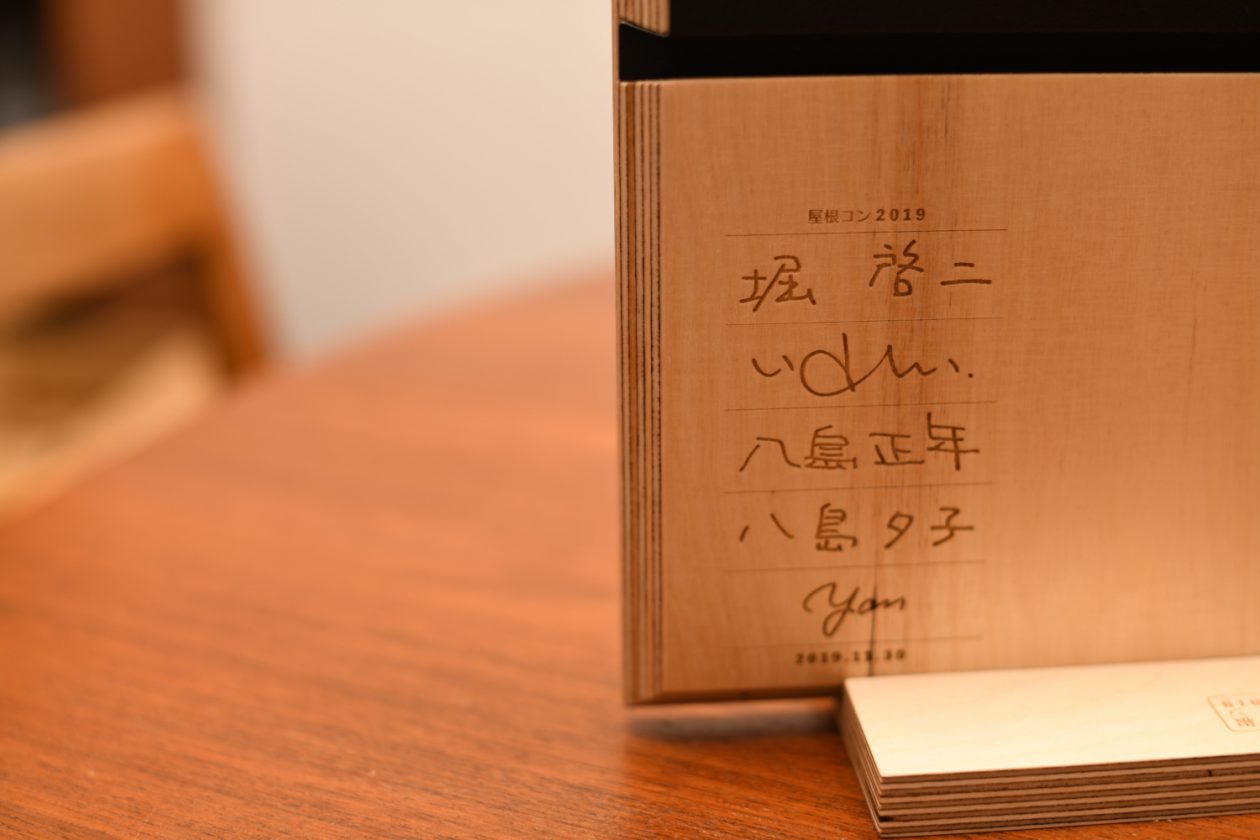 屋根コン2019
堀 啓二
八島正年
八島夕子
yam
2019.11.30